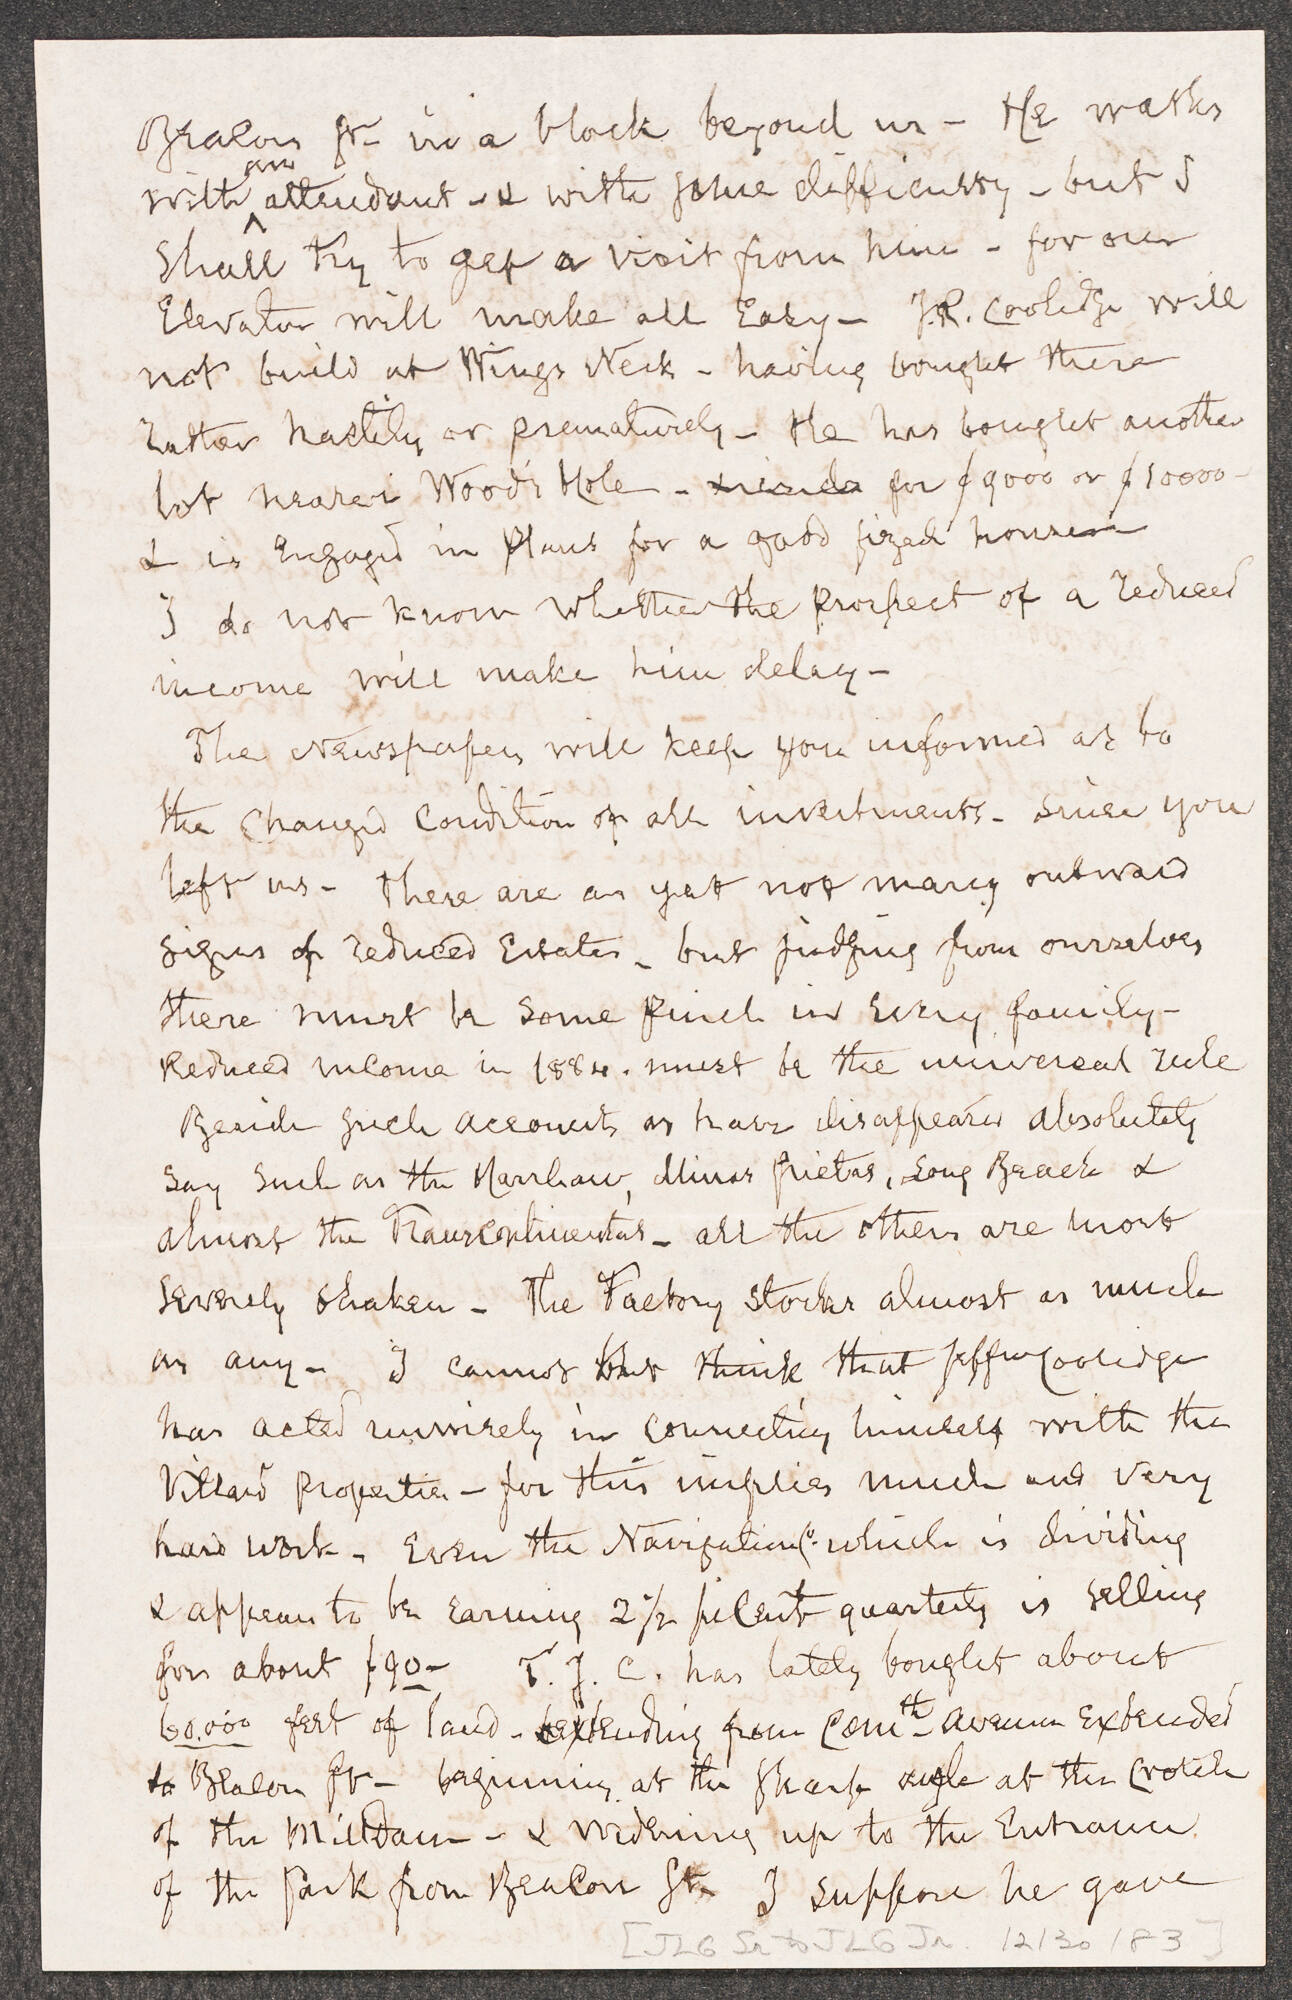 Beacon St- in a block beyond us - He walks
with an attendant - & with some difficulty - but I
shall try to get a visit from him - for our
Elevator will make all Easy - J.R. Coolidge will
not build at Wings Neck - having bought there
rather hastily or prematurely - He has bought another
lot nearer Wood's Hole - for $9000 or $10000-
& is Engaged in Plans for a good sized house
I do not know whether the prospect of a reduced
income will make him delay -
The Newspapers will keep you informed as to
the Changed Condition of all investments - since you
left us - there are as yet not many outward
signs of reduced Estates - but judging from ourselves
there must be some Pinch in Every family -
Reduced income in 1884. must be the universal rule
Beside such accounts as have disappeared absolutely
say such as the Marshaw, Minas Prietas, Long Beach &
almost the Transcontinental - all the others are most
severely shaken - The Factory stocks almost as much
as any - I cannot but think that Jeffn Coolidge
has acted unwisely in connecting himself with the
Villard properties - for this implies much and very
hard work - Even the Navigation Co. which is dividing
& appears to be Earning 2 1/2 pr Cent quarterly is selling
for about $90- T. J. C. has lately bought about
60.000 feet of land - extending from Comth Avenue Extended
to Beacon St - beginning at the sharp angle at the Crotch
of the Milldam - & widening up to the Entrance
of the Park from Beacon St. I suppose he gave
[JLG Sr to JLG Jr. 12/30/83]